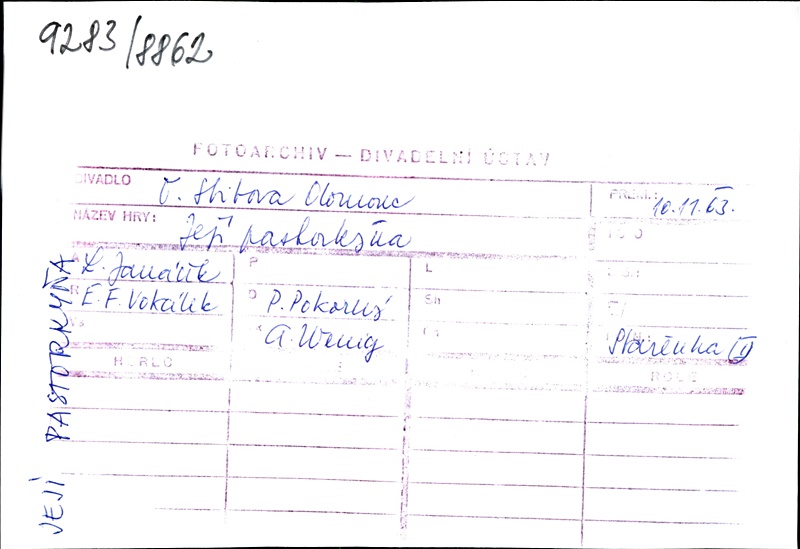 9283/8862
FOTOARCHIV — DIVADELNÍ ÚSTAV
DIVADLO O. Stibora Olomouc
PREM.: 10.11.63.
NÁZEV HRY: Její pastorkyňa
A L. Janáček P L
R E. F. Vokálek O P. Pokorný Sh
A. Wenig
Stařenka (I)
HEREC
ROLE
JEJÍ PASTORKYŇA